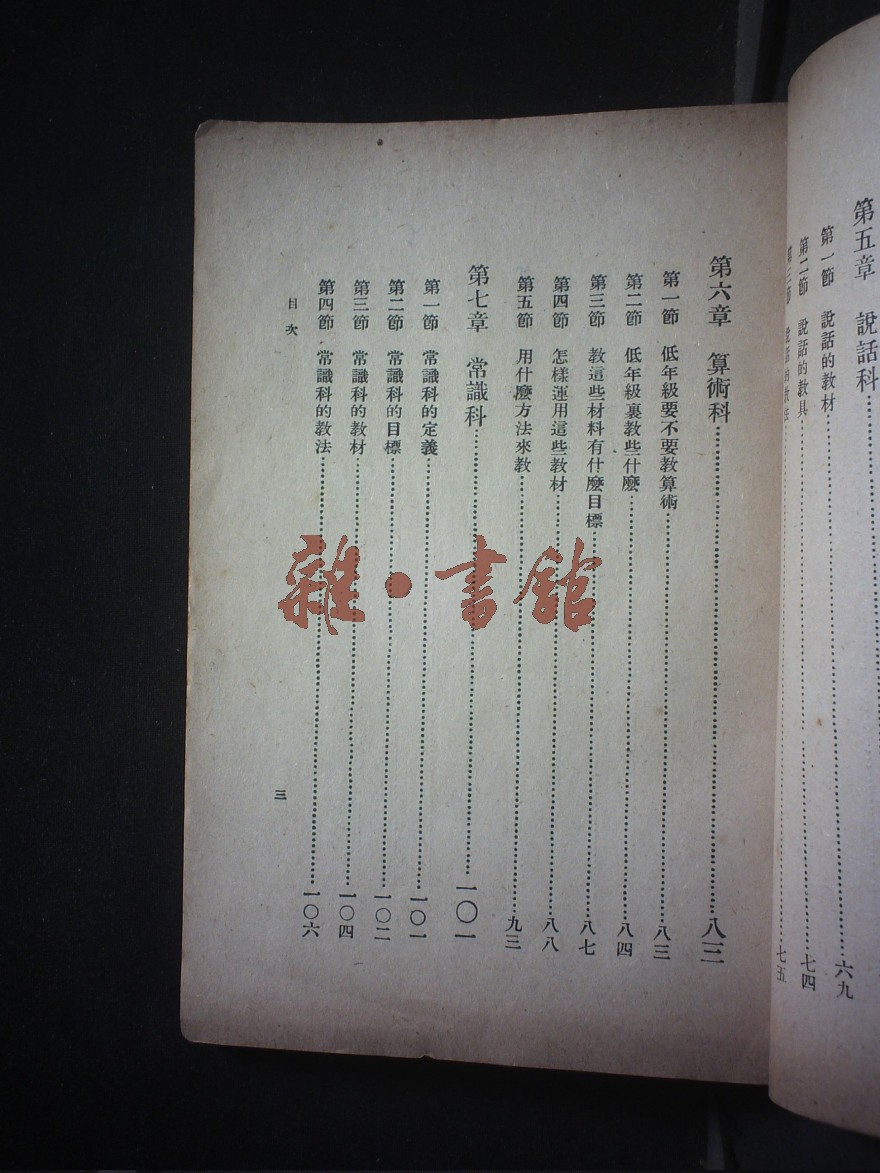 第五章　說話科
第一節　說話的教材……六九
第二節　說話的教具……七四
第三節　說話的教法……七五
第六章　算術科……八三
第一節　低年級要不要教算術……八三
第二節　低年級裏教些什麼……八四
第三節　教這些材料有什麼目標……八七
第四節　怎樣運用這些教材……八八
第五節　用什麼方法來教……九三
第七章　常識科……一〇一
第一節　常識科的定義……一〇一
第二節　常識科的目標……一〇二
第三節　常識科的教材……一〇四
第四節　常識科的教法……一〇六
目次
三
雜·書館